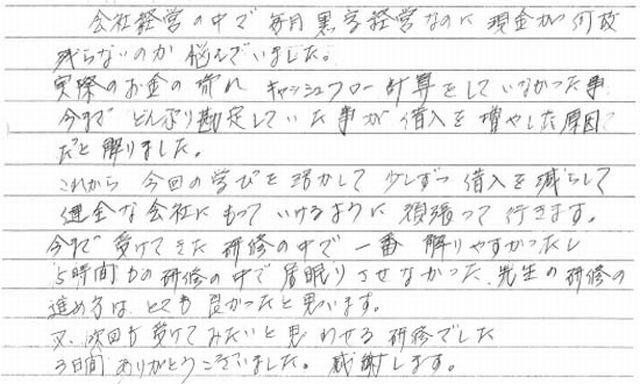 会社経営の中で毎月黒字経営なのに現金が何故
残らないのか悩んでいました。
実際のお金の流れ キャッシュフロー計算をしていなかった事
今まで どんぶり勘定していた事が借入を増やした原因
だと解りました。
これから 今回の学びを活かして 少しずつ 借入を減らして
健全な会社にもっていけるように頑張って行きます。
今まで受けてきた研修の中で一番解りやすかったし
5時間もの研修の中で居眠りさせなかった、先生の研修の
進め方は、とても良かったと思います。
又、次回も受けてみたいと思わせる研修でした
3日間ありがとうございました。感謝します。